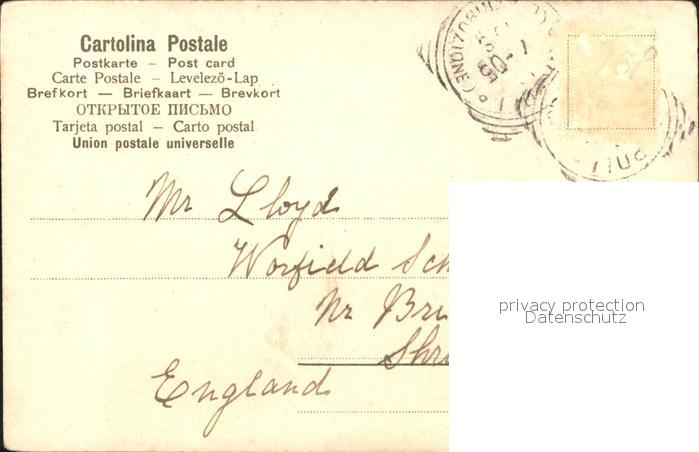 Cartolina Postale
Postkarte – Post card
Carte Postale – Levelező-Lap
Brefkort — Briefkaart — Brevkort
ОТКРЫТОЕ ПИСЬМО
Tarjeta postal — Carto postal
Union postale universelle
Mr Lloyd
Worfield Sch
Nr Bri
Shr
England
privacy protection
Datenschutz